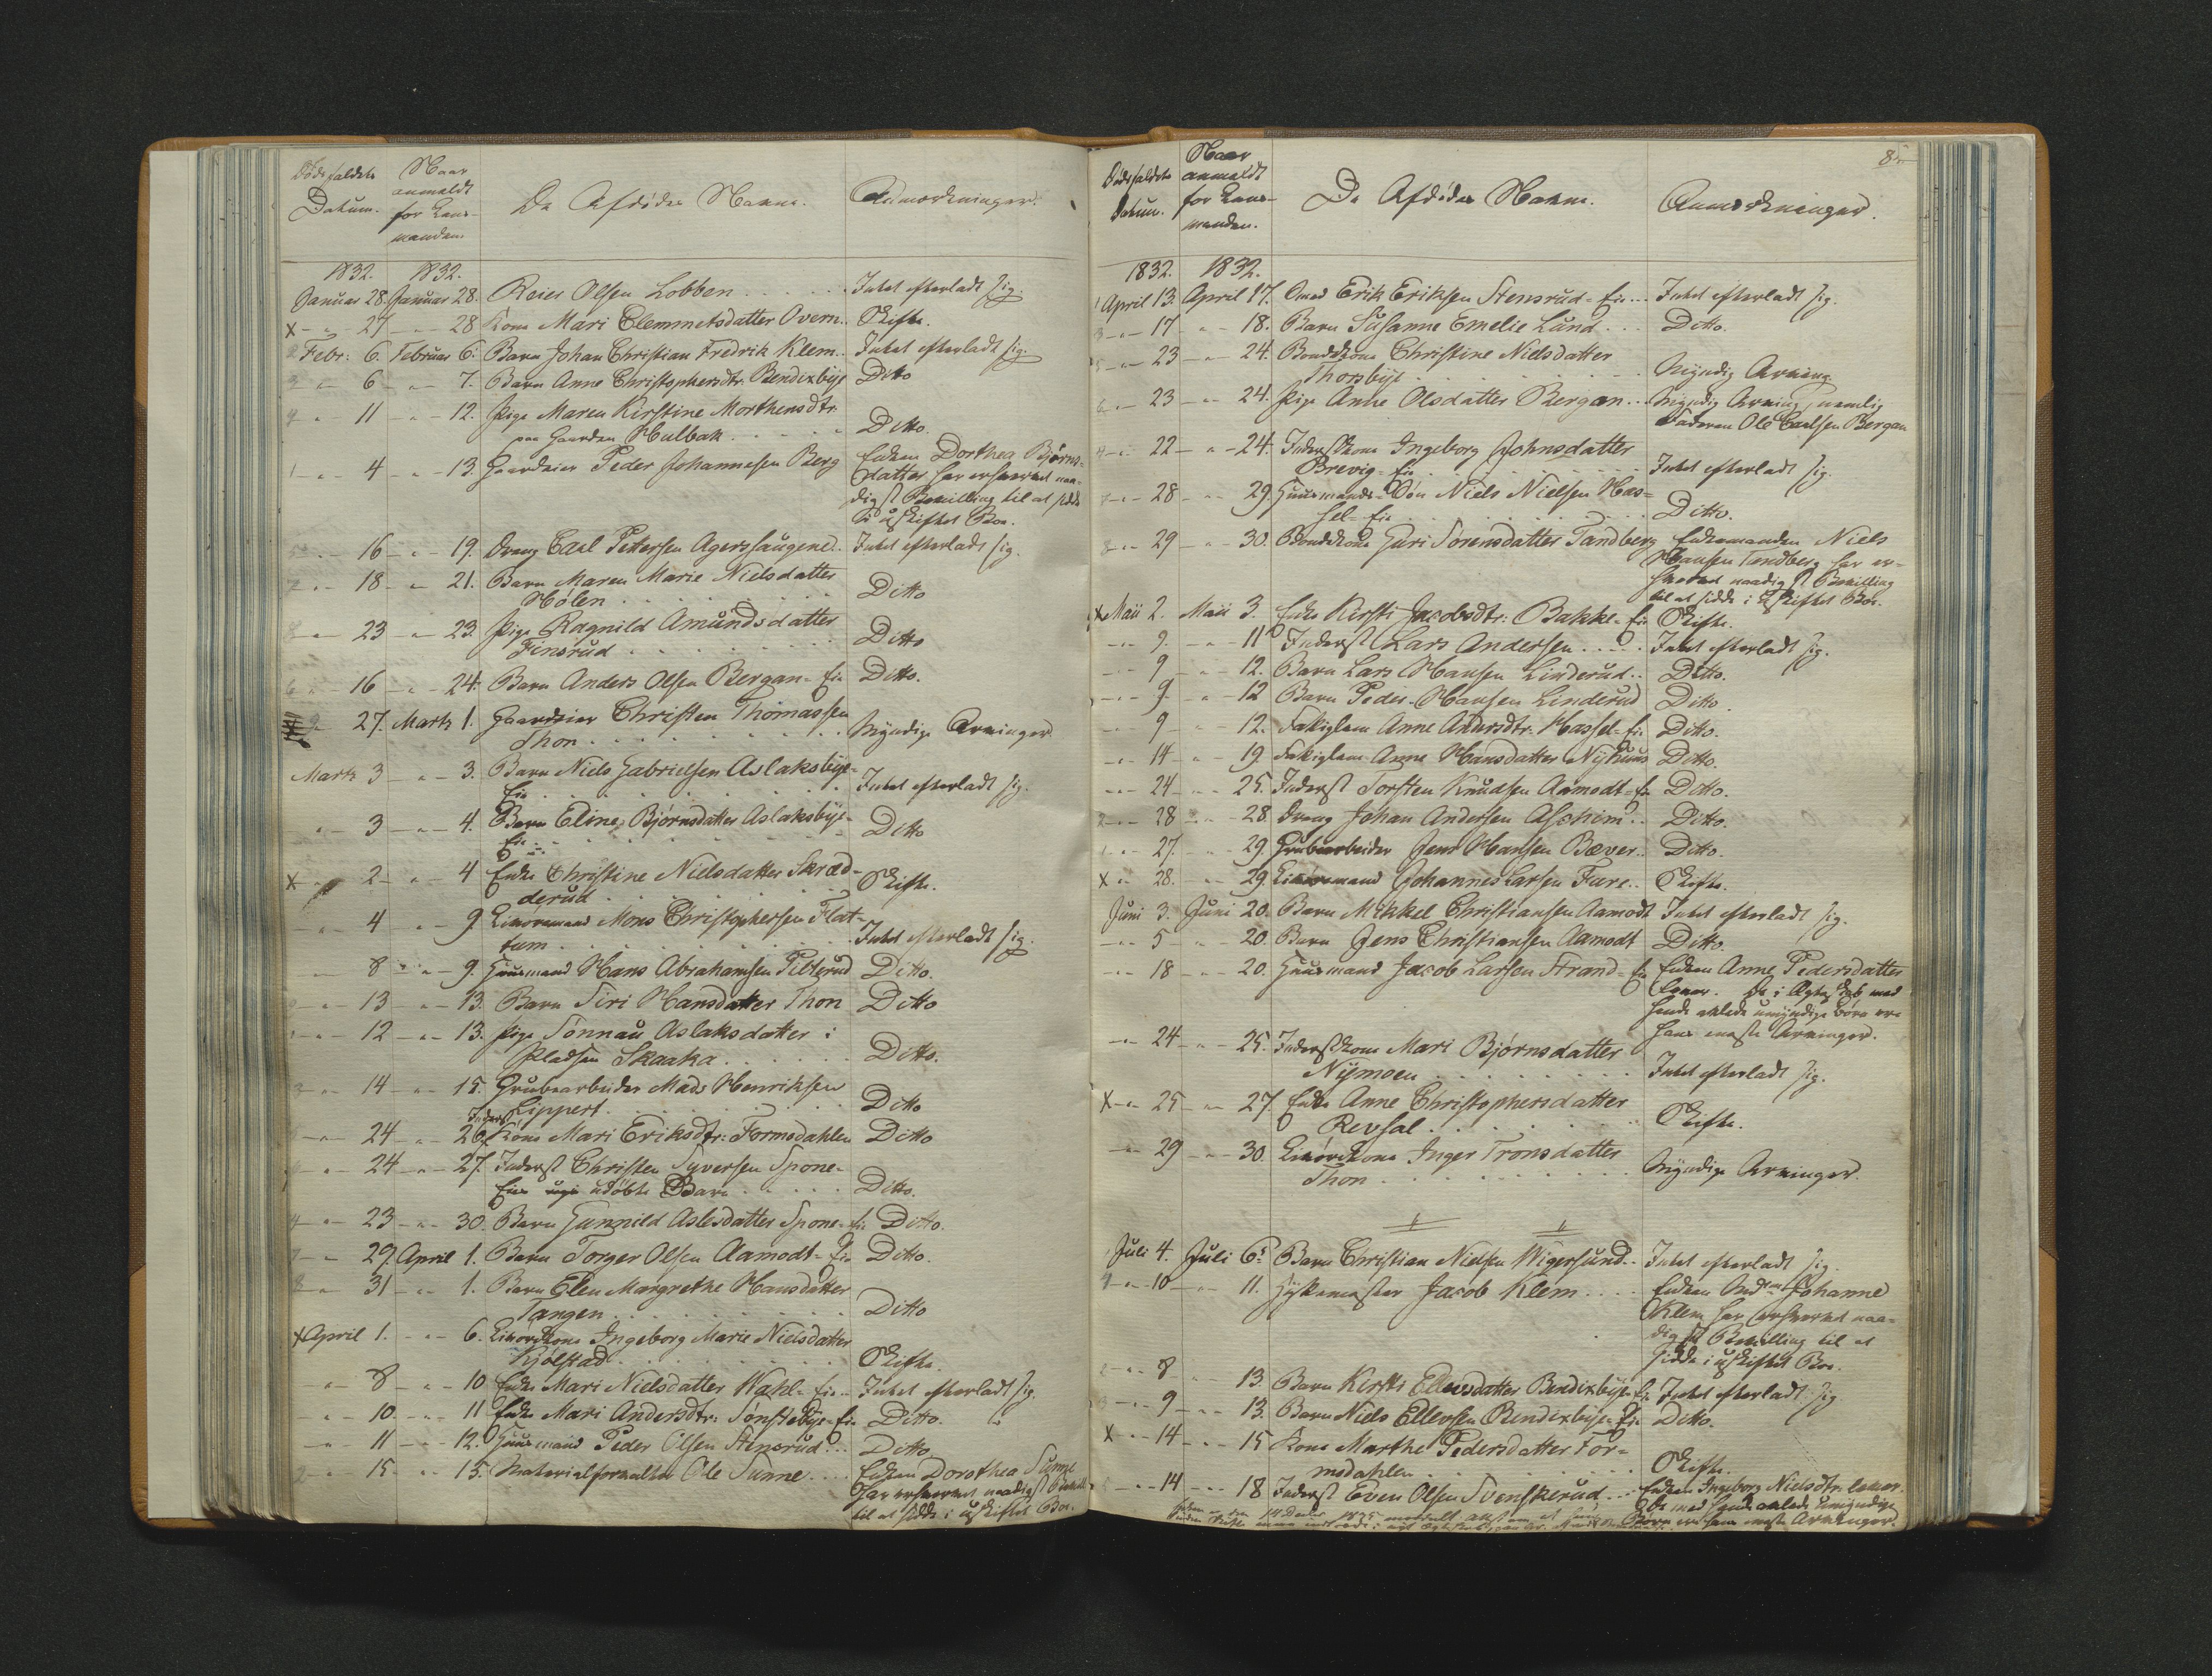 Dødsfaldets Datum.
Naar anmeldt for Lens-manden
De Afdødes Navne.
Anmærkninger.
1832. 1832.
Januar 28. Januar 28. Reier Olsen Lobben . . . . . Intet efterladt sig.
x - " - 27 - " - 28 Kone Mari Clemmetsdatter Overn.. Skifte.
Febr: 6. Februar 6. Barn Johan Christian Fredrik Klem.. Intet efterladt sig.
" - 6 - " - 7. Barn Anne Christophersdtr. Bendixbye Ditto
" 11 - " - 12. Pige Maren Kirstine Morthensdtr.
paa Gaarden Hulbak . . . . . Ditto.
" - 4 - " - 13. Gaardeier Peder Johannesen Berg Enken Dorthea Bjørns-
datter har erhvervet naa-
digst Bevilling til at sidde
i uskiftet Boe.
" - 16 - " - 19. Dreng Carl Pettersen Agerssaugene.. Intet efterladt sig.
" - 18 - " 21. Barn Maren Marie Nielsdatter
Hølen . . . . . . Ditto
" - 23 - " - 23. Pige Ragnild Amundsdatter
Finsrud . . . . . . Ditto
" - 16 - " - 24. Barn Anders Olsen Bergan=Eie Ditto.
27. Marts 1. Gaardeier Christen Thomassen
Thon . . . . . . . Myndige Arvinger.
Marts 3 - " - 3. Barn Niels Gabrielsen Aslaksbye-
Eie . . . . . . Intet efterladt sig.
" - 3 - " - 4. Barn Eline Bjørnsdatter Aslaksbye-
Eie . . . . . . Ditto
x " 2 - " - 4 Enke Christine Nielsdatter Skræd-
derud . . . . . . Skifte.
- " - 4 " - 9. Livøremand Mons Christophersen Flat-
tum . . . . . . . Intet efterladt sig.
8 - " - 9. Huusmand Hans Abrahamsen Pilterud Ditto.
" - 13 - " - 13. Barn Siri Hansdatter Thon Ditto
" - 12 - " - 13. Pige Sønnau Aslaksdatter i
Pladsen Skaaka . . . . . Ditto.
" - 14 - " - 15. Grubearbeider Mads Henriksen
Lippert . . . . . . Ditto
Inderst
- " - 24 - " - 26. Kone Mari Eriksdtr: Formodahlen Ditto
" - 24 - " - 27. Inderst Christen Syversen Spone-
Eies udøbte Barn . . . . . Ditto.
" - 23 - " - 30. Barn Gunnild Aslesdatter Spone-Eie Ditto.
" 29. April 1. Barn Torger Olsen Aamodt=Eie Ditto.
" 31 - " - 1. Barn Elen Margrethe Hansdatter
Tangen . . . . . . Ditto
x April 1. - " - 6. Livørekone Ingeborg Marie Nielsdatter
Kjølstad . . . . . . Skifte.
" - 8 - " - 10 Enke Mari Nielsdatter Wahl=Eie.. Intet efterladt sig.
- " - 10. - " - 11 Enke Mari Andersdtr: Sønstebye=Eie Ditto.
- " - 11 - " - 12. Huusmand Peder Olsen Stensrud... Ditto
" - 15. " - 15. Materialforvalter Ole Sunne . . . Enken Dorothea Sunne
har erhvervet naadigst Bevill-
til at sidde i uskiftet Boe.
85
Dødsfaldets Datum.
Naar anmeldt for Lens-manden.
De Afdødes Navne.
Anmærkninger.
1832. 1832.
April 13. April 17. Erik Eriksen Stensrud=Eie... Intet efterladt sig.
- " - 17 - " - 18. Barn Susanne Emelie Lund . . . Ditto.
- " - 23 - " - 24. Bondekone Christine Nielsdatter
Thorsbye . . . . . . . Myndig Arving.
- " - 23 - " - 24. Pige Anne Olsdatter Bergan... Myndig Arving nemlig
Faderen Ole Carlsen Bergan
- " - 22 - " - 24. Inderstkone Ingeborg Johnsdatter
Brevig=Eie . . . . . . Intet efterladt sig.
- " - 28 - " 29. Huusmands=Søn Niels Nielsen Has-
sel=Eie . . . . . . Ditto.
- " - 29 - " - 30. Bondekone Guri Sørensdatter Tandberg Enkemanden Niels
Hansen Tandberg har er-
hvervet naadigst Bevilling
til at sidde i uskiftet Boe.
x Maii 2. Maii 3. Enke Kirsti Jacobsdtr: Bakke=Eie Skifte.
- " - 9. - " 11 Inderst Lars Andersen . . . . . Intet efterladt sig.
- " 9 - " - 12. Barn Lars Hansen Linderud.. Ditto.
- " - 9 - " - 12 Barn Peder Hansen Linderud Ditto.
- " 9 - " 12. Fakiglem Anne Andersdtr. Hassel=Eie Ditto.
- " 14 - " 19. Fakiglem Anne Hansdatter Nyhuus Ditto.
- " - 24 - " - 25. Inderst Torsten Knudsen Aamodt=Eie Ditto.
- " - 28 - " - 28. Dreng Johan Andersen Aschim.. Ditto.
- " - 27. " - 29 Grubearbeider Jens Hansen Bæver.. Ditto.
x " 28. - " - 29. Livøremand Johannes Larsen Fure.. Skifte.
Juni 3. Juni 20. Barn Mikkel Christiansen Aamodt Intet efterladt sig.
- " - 5 - " - 20. Barn Jens Christiansen Aamodt Ditto.
- " - 18 - " - 20. Huusmand Jacob Larsen Strand=Eie Enken Anne Pedersdatter
lever. De i Ægteskab med
hende avlede umyndige Børn ere
hans eneste Arvinger.
- " 24 - " - 25. Inderstkone Mari Bjørnsdatter
Nymoen . . . . . . . Intet efterladt sig.
x - " - 25 - " - 27. Enke Anne Christophersdatter
Revsal . . . . . . Skifte.
- " 29 - " - 30. Livørekone Inger Tronsdatter
Thon . . . . . . . Myndige Arvinger.
Juli 4. Juli 6. Barn Christian Nielsen Wigersund.. Intet efterladt sig.
- " - 10 - " - 11. Hyttemester Jacob Klem . . . . Enken Johanne
Klem har erhvervet naa-
digst Bevilling til at
sidde i uskiftet Boe.
- " - 8 - " 13. Barn Kirsti Ellevsdatter Bendixbye=Eie Intet efterladt sig
- " 9 - " 13. Barn Niels Ellevsen Bendixbye=Eie Ditto.
x - " - 14 - " - 15 Kone Marthe Pedersdatter For-
modahlen . . . . . . Skifte.
- " - 14 - " - 18 Inderst Even Olsen Svenskerud... Enken Ingeborg Nielsdtr. lever.
De med hende avlede umyndige
Børn ere hans eneste Arvinger.